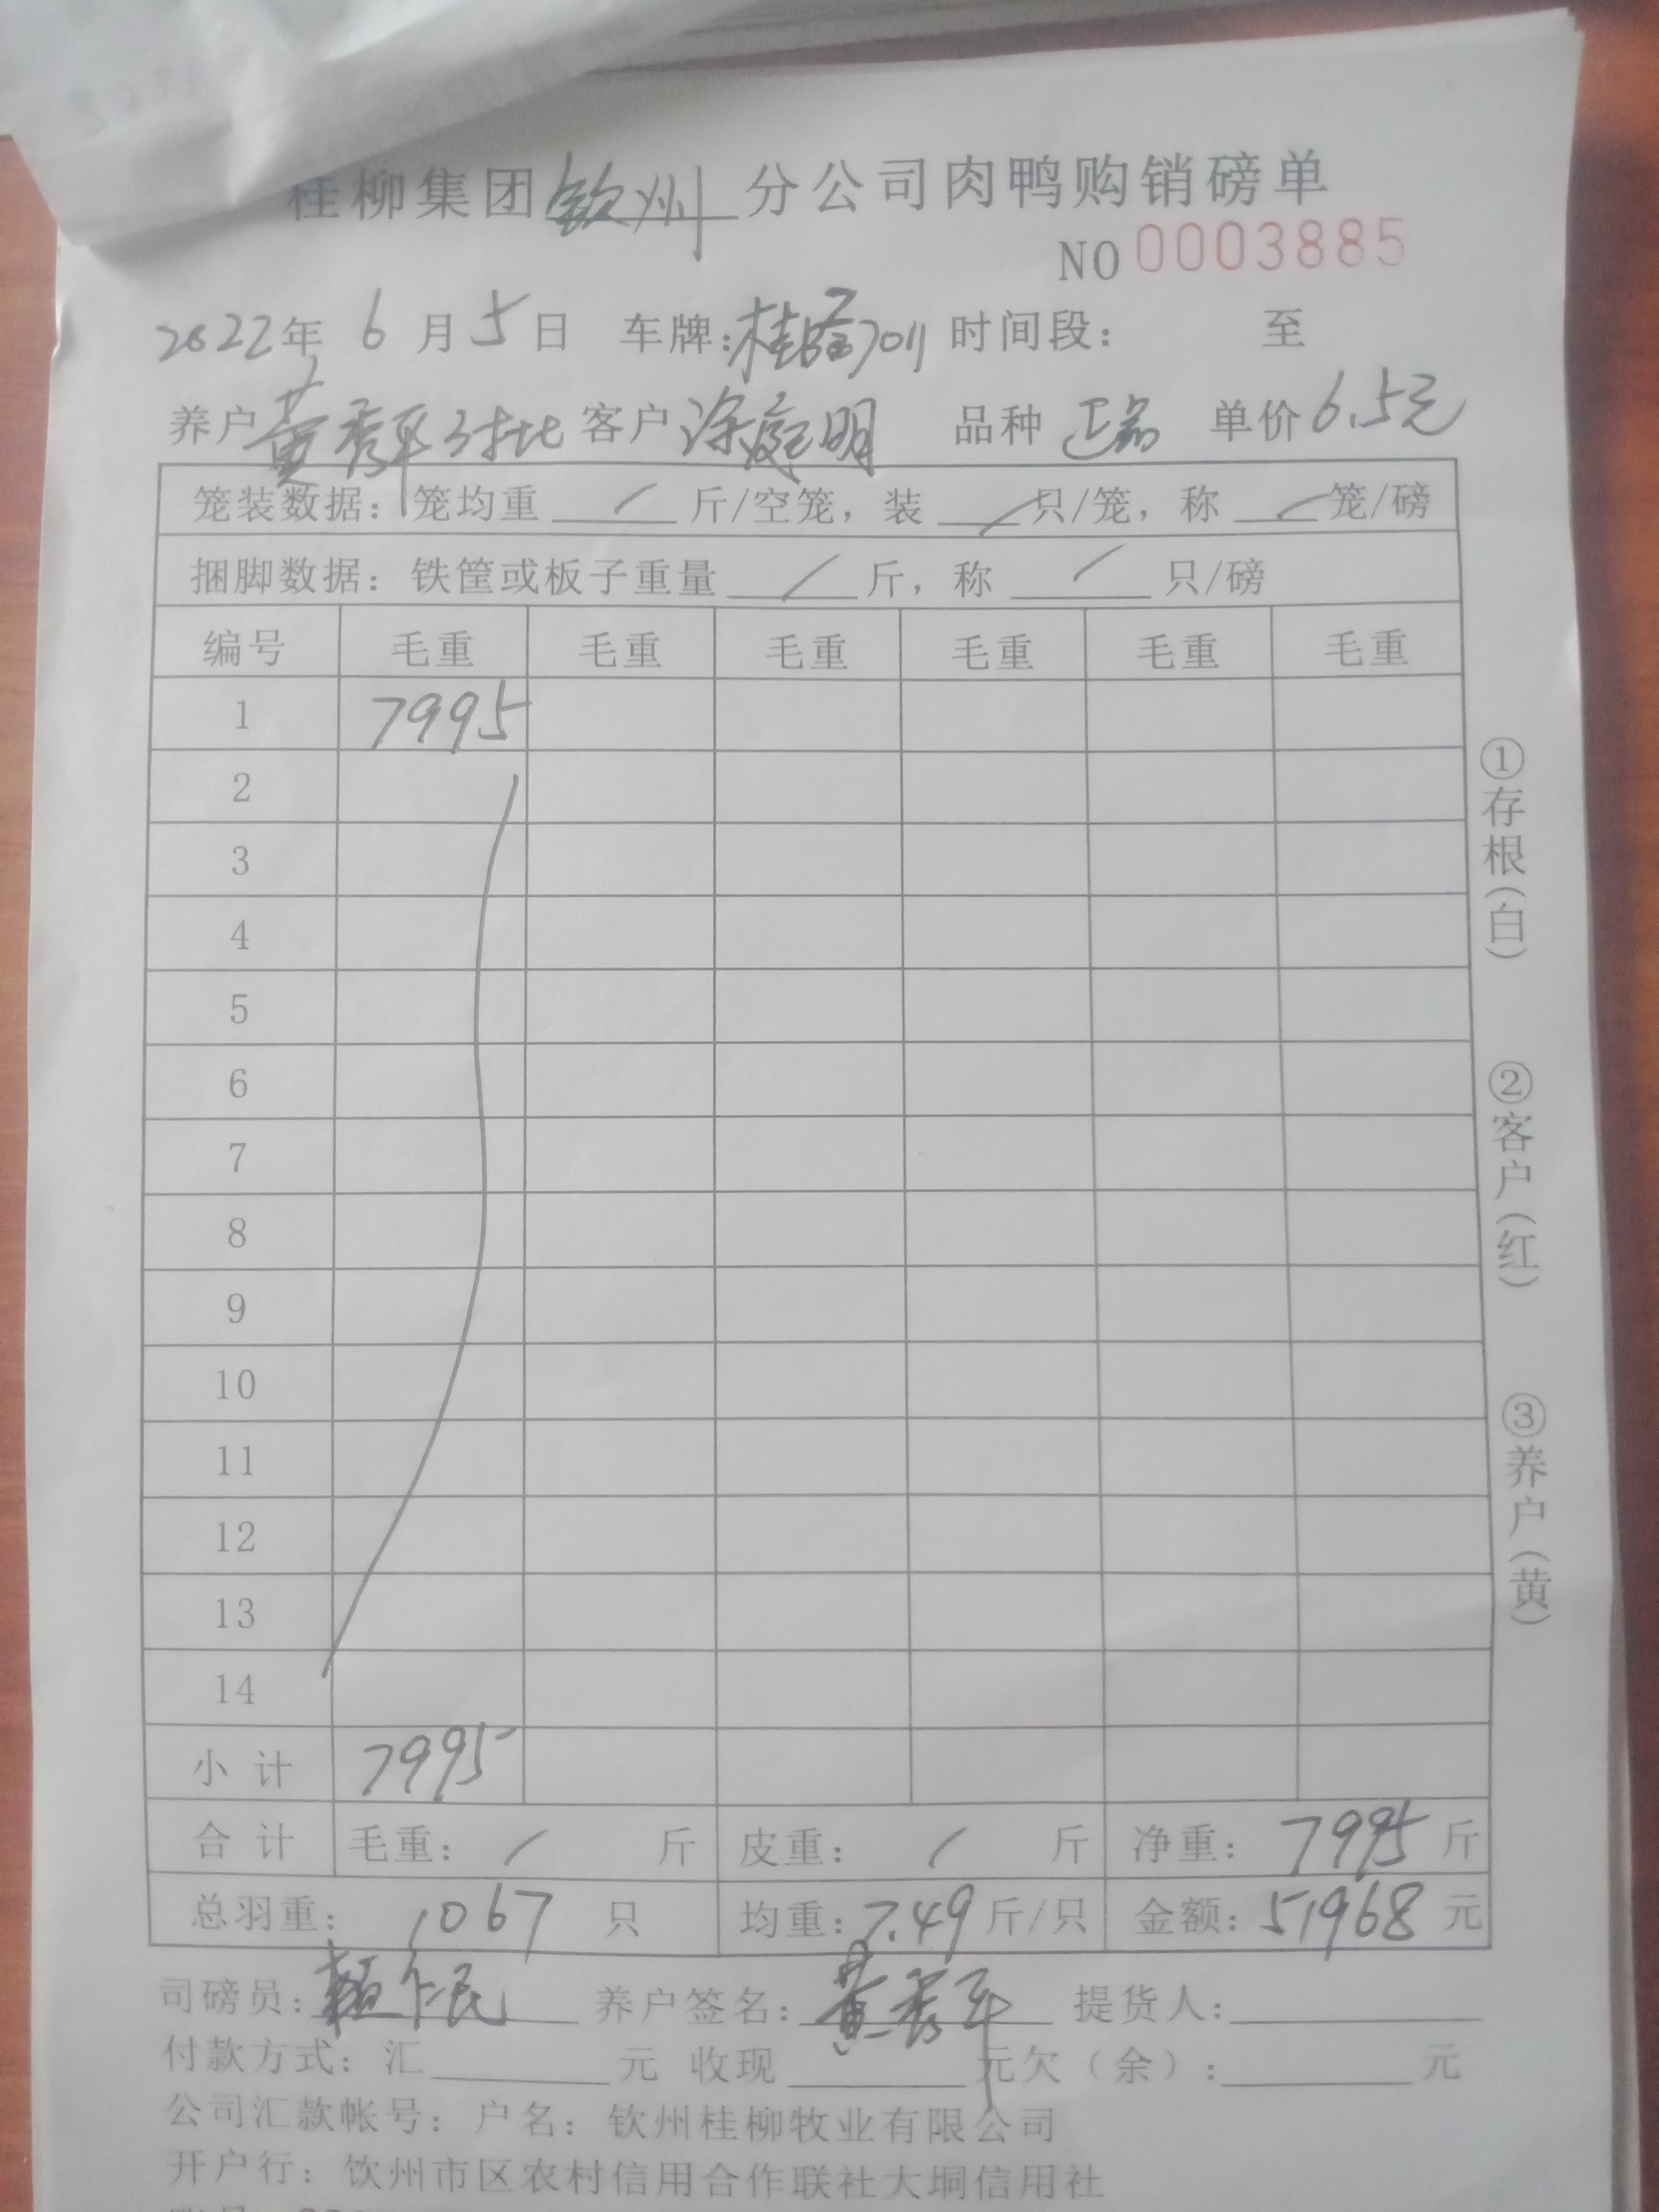 桂柳集团钦州分公司肉鸭购销磅单
NO 0003885
2022年 6 月 5 日 车牌: 7011 时间段: 至
养户 黄秀平对比 客户 涂庭明 品种 单价 6.5元
笼装数据: 笼均重 / 斤/空笼, 装 / 只/笼, 称 / 笼/磅
捆脚数据: 铁筐或板子重量 / 斤, 称 / 只/磅
编号 毛重 毛重 毛重 毛重 毛重 毛重
1 7995
2
3
4
5
6
7
8
9
10
11
12
13
14
小 计 7995
合 计 毛重: / 斤 皮重: / 斤 净重: 7995 斤
总羽重: 1067 只 均重: 7.49 斤/只 金额: 51968 元
司磅员: 养户签名: 黄秀平 提货人:
付款方式: 汇 元 收现 元欠(余): 元
公司汇款帐号: 户名: 钦州桂柳牧业有限公司
开户行: 钦州市区农村信用合作联社大垌信用社
①存根(白)
②客户(红)
③养户(黄)